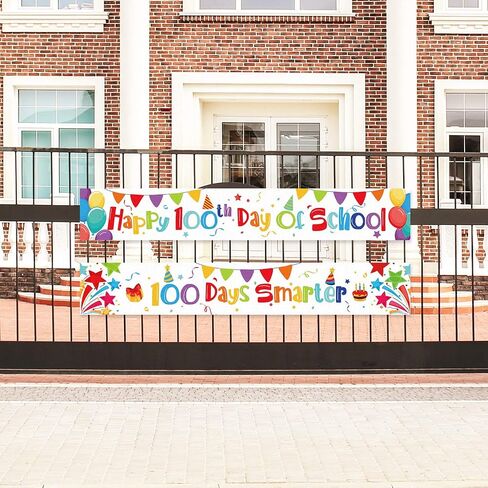 Happy 100th Day of School
100 Days Smarter